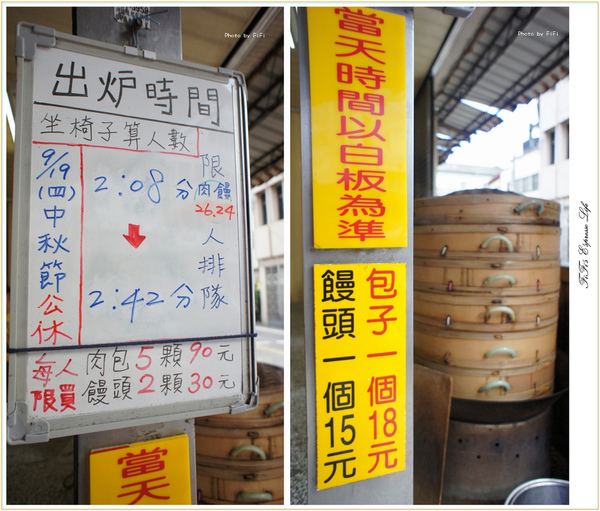 Photo by FiFi
出炉時間
坐椅子算人數
9/19
(四)
中秋節公休
2:08分
2:42分
限肉饅
26.24
人排隊
每人限買
肉包5顆90元
饅頭2顆30元
當天
Photo by FiFi
當天時間以白板為準
包子一個18元
饅頭一個15元
FiFi's Espresso Life